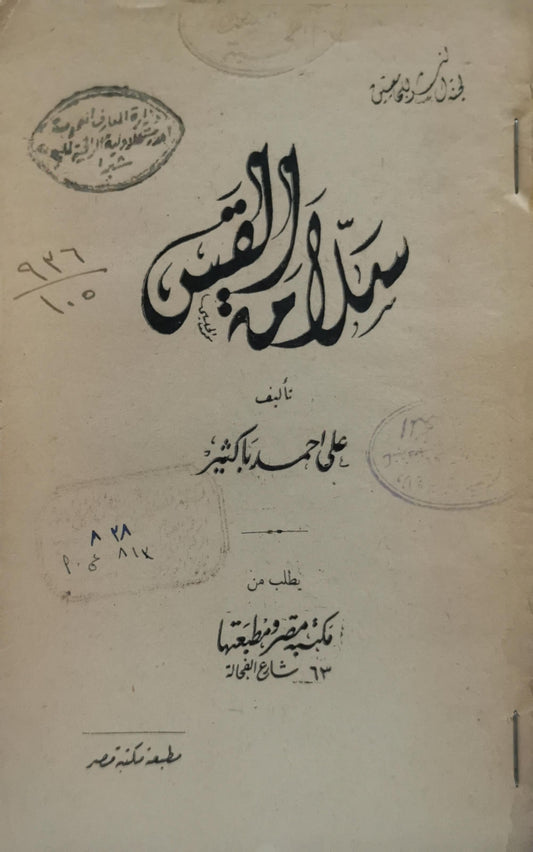 لجنة النشر للجامعيين
وزارة المعارف العمومية
شبرا
سلّامة القس
٩٣٦
١٠٥
تأليف
على احمد باكثير
٨ ٣٨
٨١٣
يطلب من
مكتبة مصر ومطبعتها
٦٣ شارع الفجالة
مطبعة مكتبة مصر